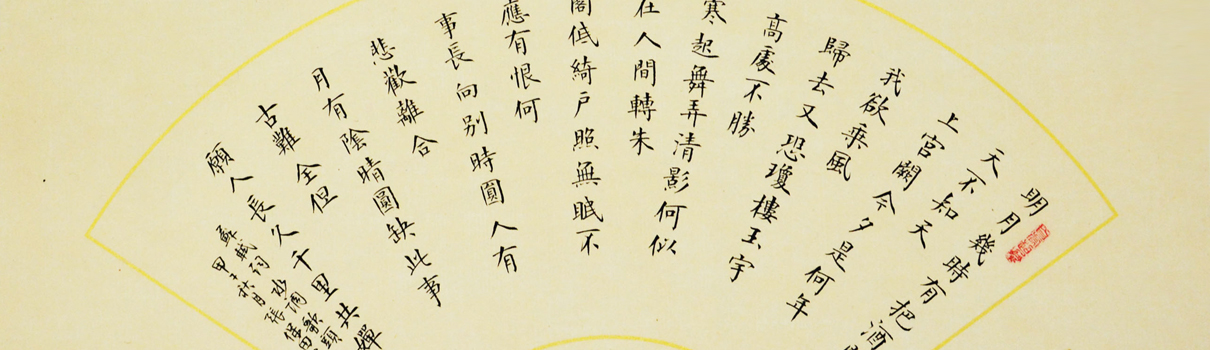 明月幾時有把酒
天不知天
上宮闕今夕是何年
我欲乘風
歸去又恐瓊樓玉宇
高處不勝
寒起舞弄清影何似
在人間轉朱
閣低綺戶照無眠不
應有恨何
事長向別時圓人有
悲歡離合
月有陰晴圓缺此事
古難全但
願人長久千里共嬋
蘇軾詞調歌頭
甲秋月張保田